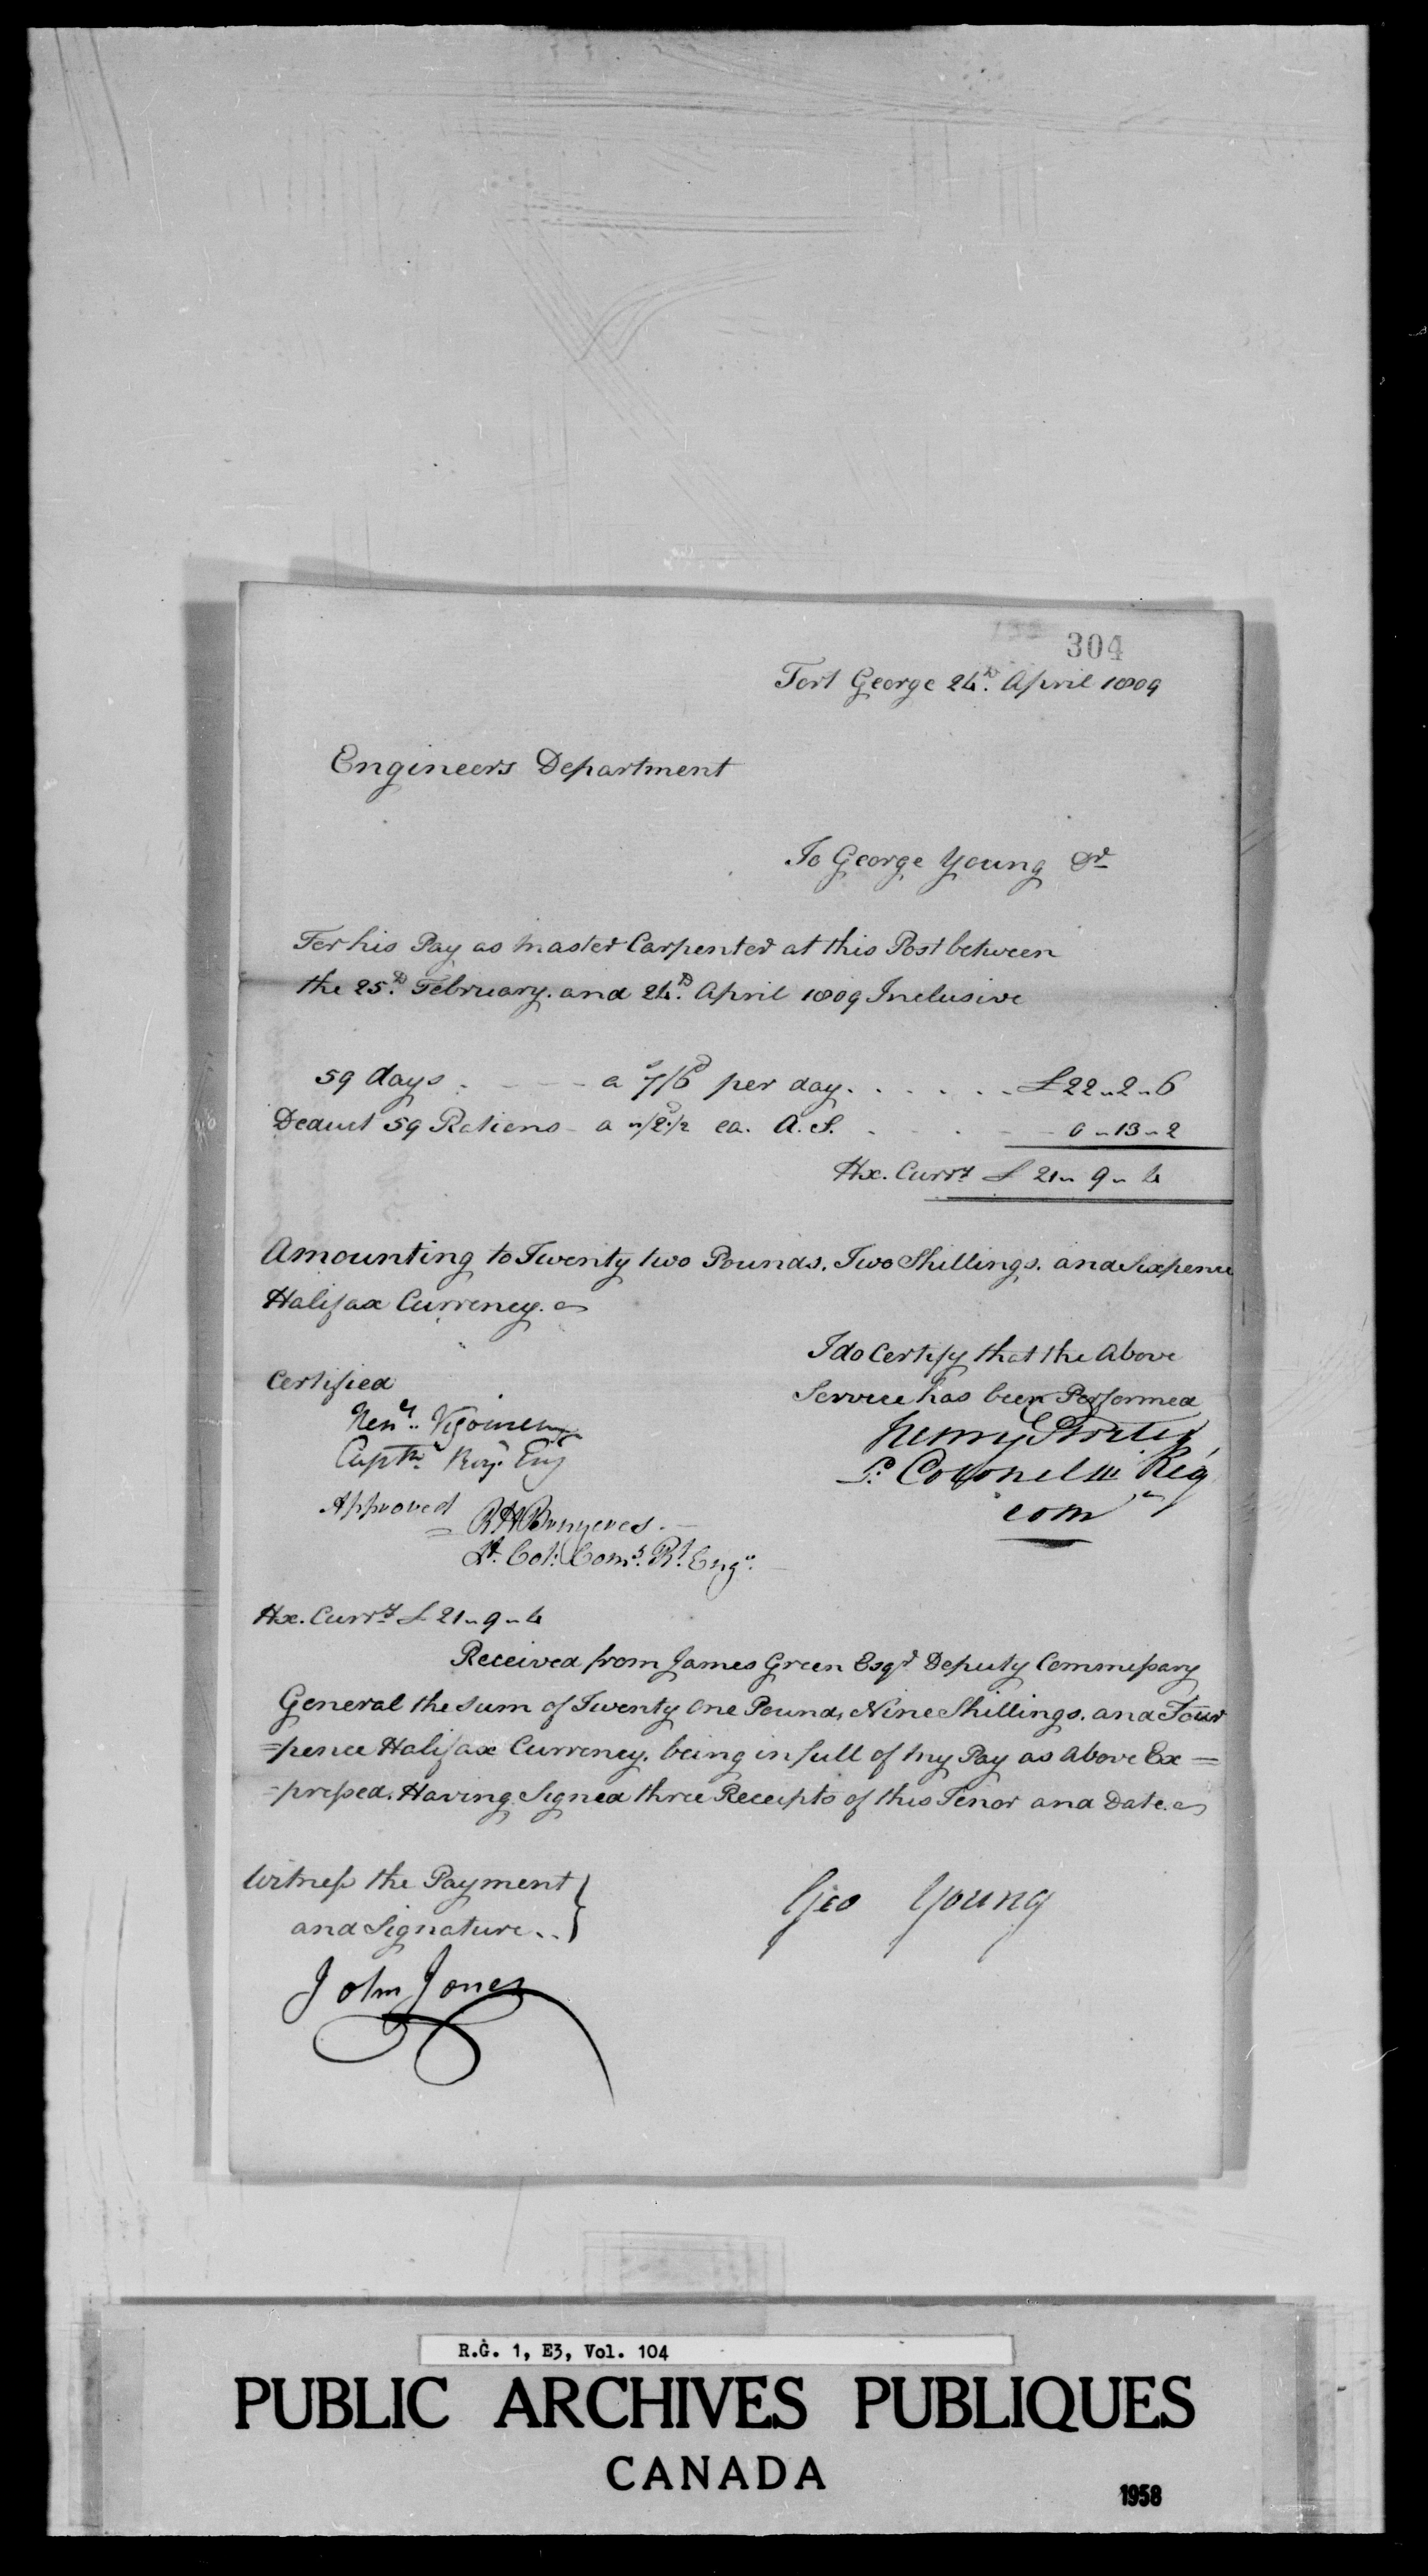 304
Fort George 24th April 1809
Engineers Department
To George Young Dr
For his Pay as Master Carpenter at this Post between
the 25th February. and 24th April 1809 Inclusive
59 days . - - - - a 7/6 per day . . . . . . £22 „ 2 „ 6
Deduct 59 Rations - a „/2½ ea. A. S. . - . - 0 „ 13 „ 2
Hx. Curry £ 21 „ 9 „ 4
Amounting to Twenty two Pounds. Two Shillings. and Sixpence
Halifax Currency.
I do Certify that the Above
Service has been Performed
Certified
Henry
Capt Roy. Eng
L. Colonel Reg
com
Approved
RH Bruyeres.
Lt. Col: Com. Rl. Engrs.
Hx. Curry £ 21 „ 9 „ 4
Received from James Green Esqr Deputy Commissary
General the sum of Twenty One Pounds, Nine Shillings. and Four
=pence Halifax Currency. being in full of my Pay as Above Ex =
=pressed. Having Signed three Receipts of this Tenor and Date.
Witness the Payment }
and Signature . . }
Geo Young
John Jones
R.G. 1, E3, Vol. 104
PUBLIC ARCHIVES PUBLIQUES
CANADA
1958